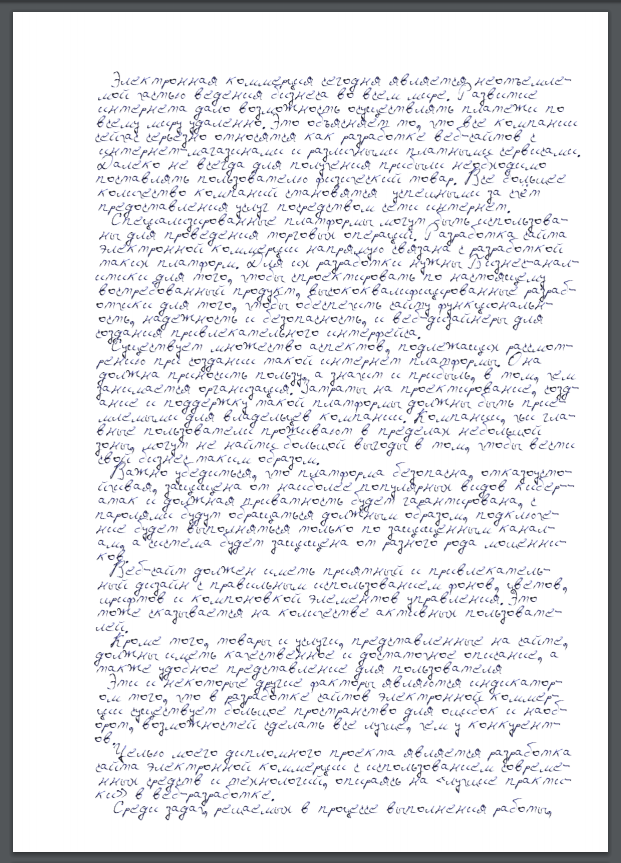 Электронная коммерция сегодня является неотъемле-
мой частью ведения бизнеса во всем мире. Развитие
интернета дало возможность осуществлять платежи по
всему миру удаленно. Это объясняет то, что все компании
сейчас серьезно относятся как разработке веб-сайтов с
интернет-магазинами и различными платными сервисами.
Далеко не всегда для получения прибыли необходимо
поставлять пользователю физический товар. Все большее
количество компаний становятся успешными за счёт
предоставления услуг посредством сети интернет.
Специализированные платформы могут быть использова-
ны для проведения торговых операций. Разработка сайта
электронной коммерции напрямую связана с разработкой
таких платформ. Для их разработки нужны Бизнес-анал-
итики для того, чтобы спроектировать по настоящему
востребованный продукт, высококвалифицированные разраб-
отчики для того, чтобы обеспечить сайту функциональн-
ость, надежность и безопасность, и веб-дизайнеры для
создания привлекательного интерфейса.
Существует множество аспектов, подлежащих рассмот-
рению при создании такой интернет платформы. Она
должна приносить пользу, а значит и прибыль, в том, чем
занимается организация. Затраты на проектирование, созд-
ание и поддержку такой платформы должны быть прие-
млемыми для владельцев компании. Компании, чьи гла-
вные пользователи проживают в пределах небольшой
зоны, могут не найти большой выгоды в том, чтобы вести
свой бизнес таким образом.
Важно убедиться, что платформа безопасна, отказоусто-
йчивая, защищена от наиболее популярных видов кибер-
атак и должная приватность будет гарантирована, с
паролями будут обращаться должным образом, подключе-
ние будет выполняться только по защищенным канал-
ам, а система будет защищена от разного рода мошенни-
ков.
Веб-сайт должен иметь приятный и привлекатель-
ный дизайн с правильным использованием фонов, цветов,
шрифтов и компоновкой элементов управления. Это
тоже сказывается на количестве активных пользовате-
лей.
Кроме того, товары и услуги, представленные на сайте,
должны иметь качественное и достаточное описание, а
также удобное представление для пользователя
Эти и некоторые другие факторы являются индикатор-
ом того, что в разработке сайтов электронной коммер-
ции существует большое пространство для ошибок и наоб-
орот, возможностей сделать все лучше, чем у конкурент-
ов.
Целью моего дипломного проекта является разработка
сайта электронной коммерции с использованием совреме-
нных средств и технологий, опираясь на «лучшие практи-
ки» в веб-разработке.
Среди задач, решаемых в процессе выполнения работы,